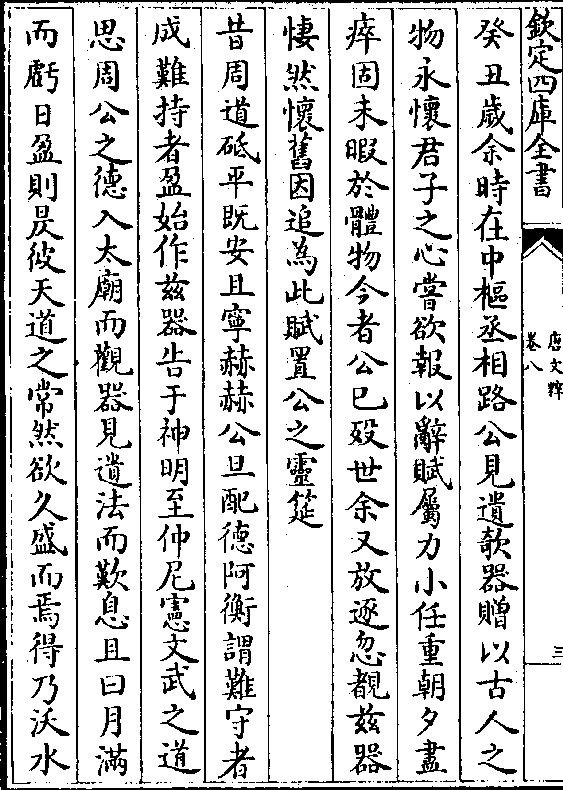 欽定四庫全書
唐文粹
卷八
三
癸丑歲余時在中樞丞相路公見遺欹器贈以古人之
物永懷君子之心嘗欲報以辭賦屬力小任重朝夕盡
瘁固未暇於體物今者公已歿世余又放逐忽覩兹器
悽然懷舊因追為此賦置公之靈筵
昔周道砥平既安且寧赫赫公旦配德阿衡謂難守者
成難持者盈始作兹器告于神明至仲尼憲文武之道
思周公之德入太廟而觀器見遺法而歎息且曰月滿
而虧日盈則昃彼天道之常然欲久盛而焉得乃沃水